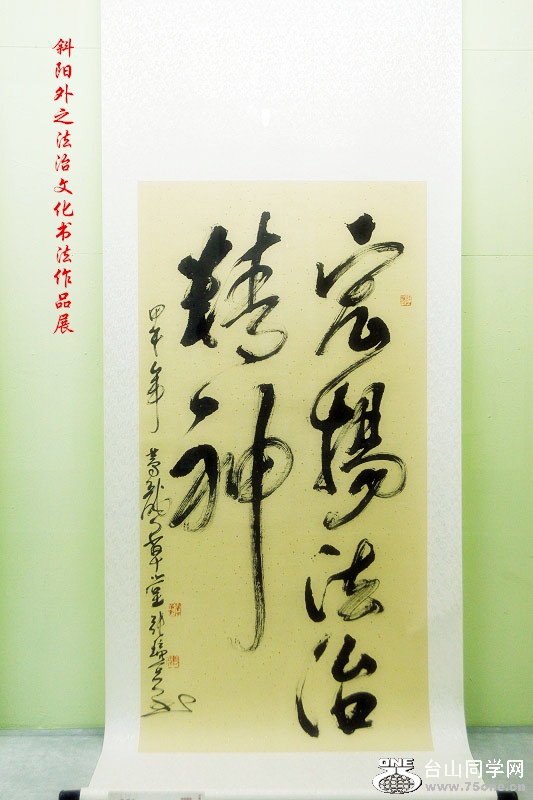 斜阳外之法治文化书法作品展
宏揚法治
精神
甲午年
草堂
ONE
台山同学网
www.75one.cn